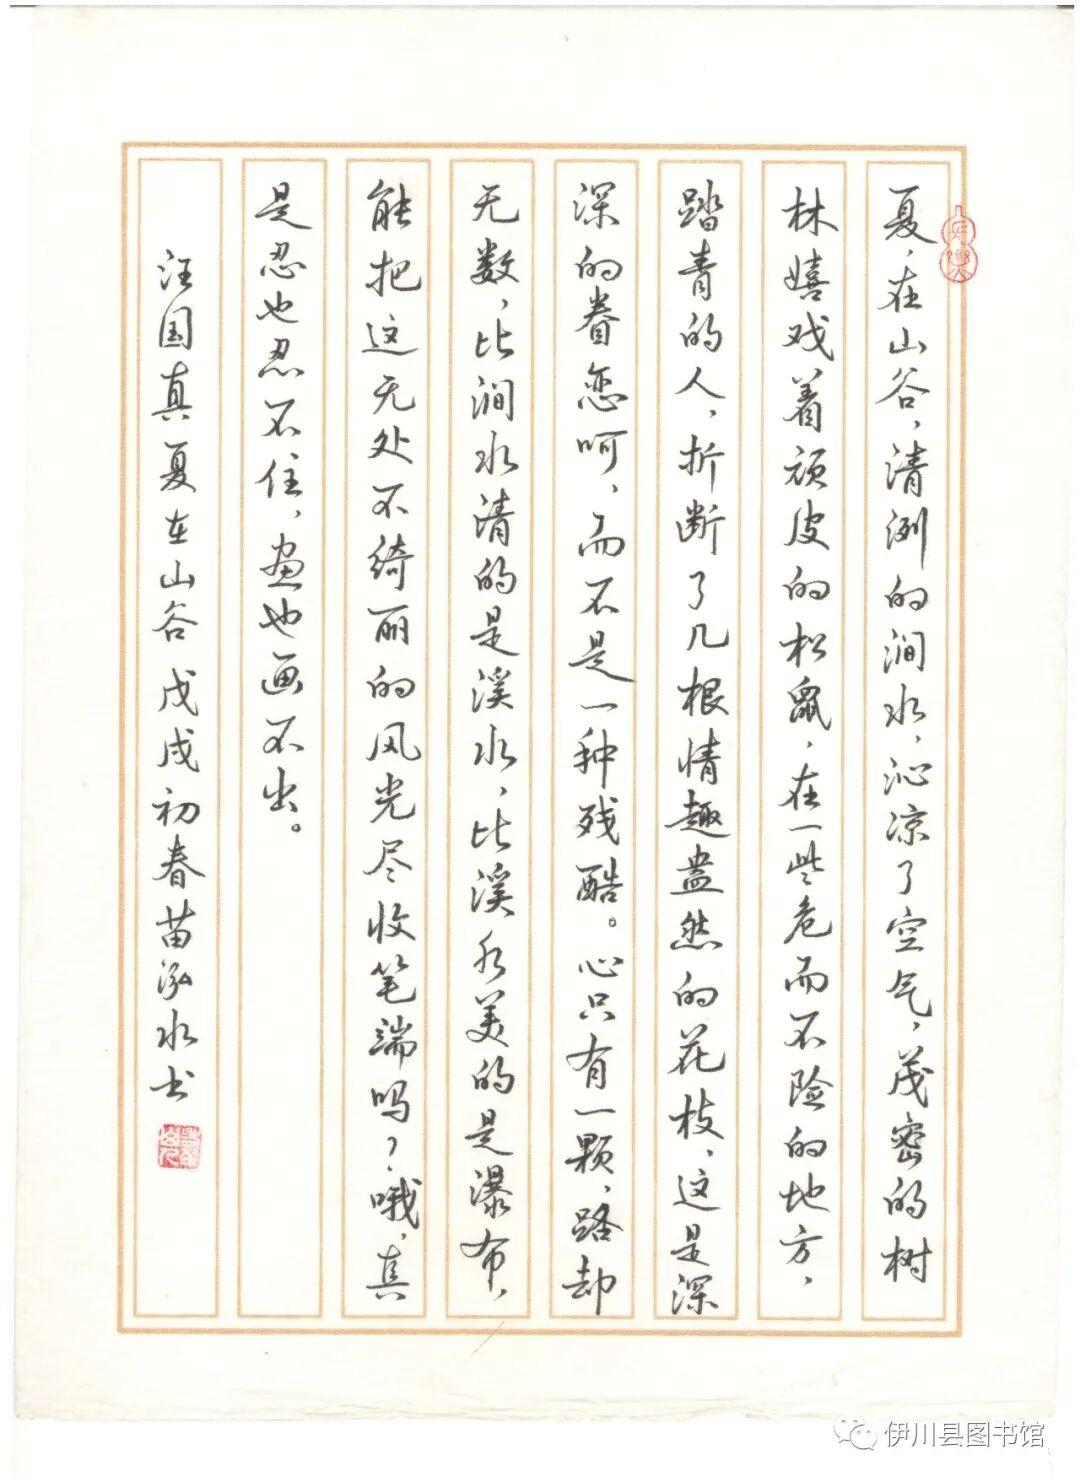 夏，在山谷，清洌的涧水，沁凉了空气，茂密的树
林嬉戏着顽皮的松鼠，在一些危而不险的地方，
踏青的人，折断了几根情趣盎然的花枝，这是深
深的眷恋呵，而不是一种残酷。心只有一颗，路却
无数，比涧水清的是溪水，比溪水美的是瀑布，
能把这无处不绮丽的风光尽收笔端吗？哦，真
是忍也忍不住，画也画不出。
汪国真夏在山谷戊戌初春苗泓水书
伊川县图书馆